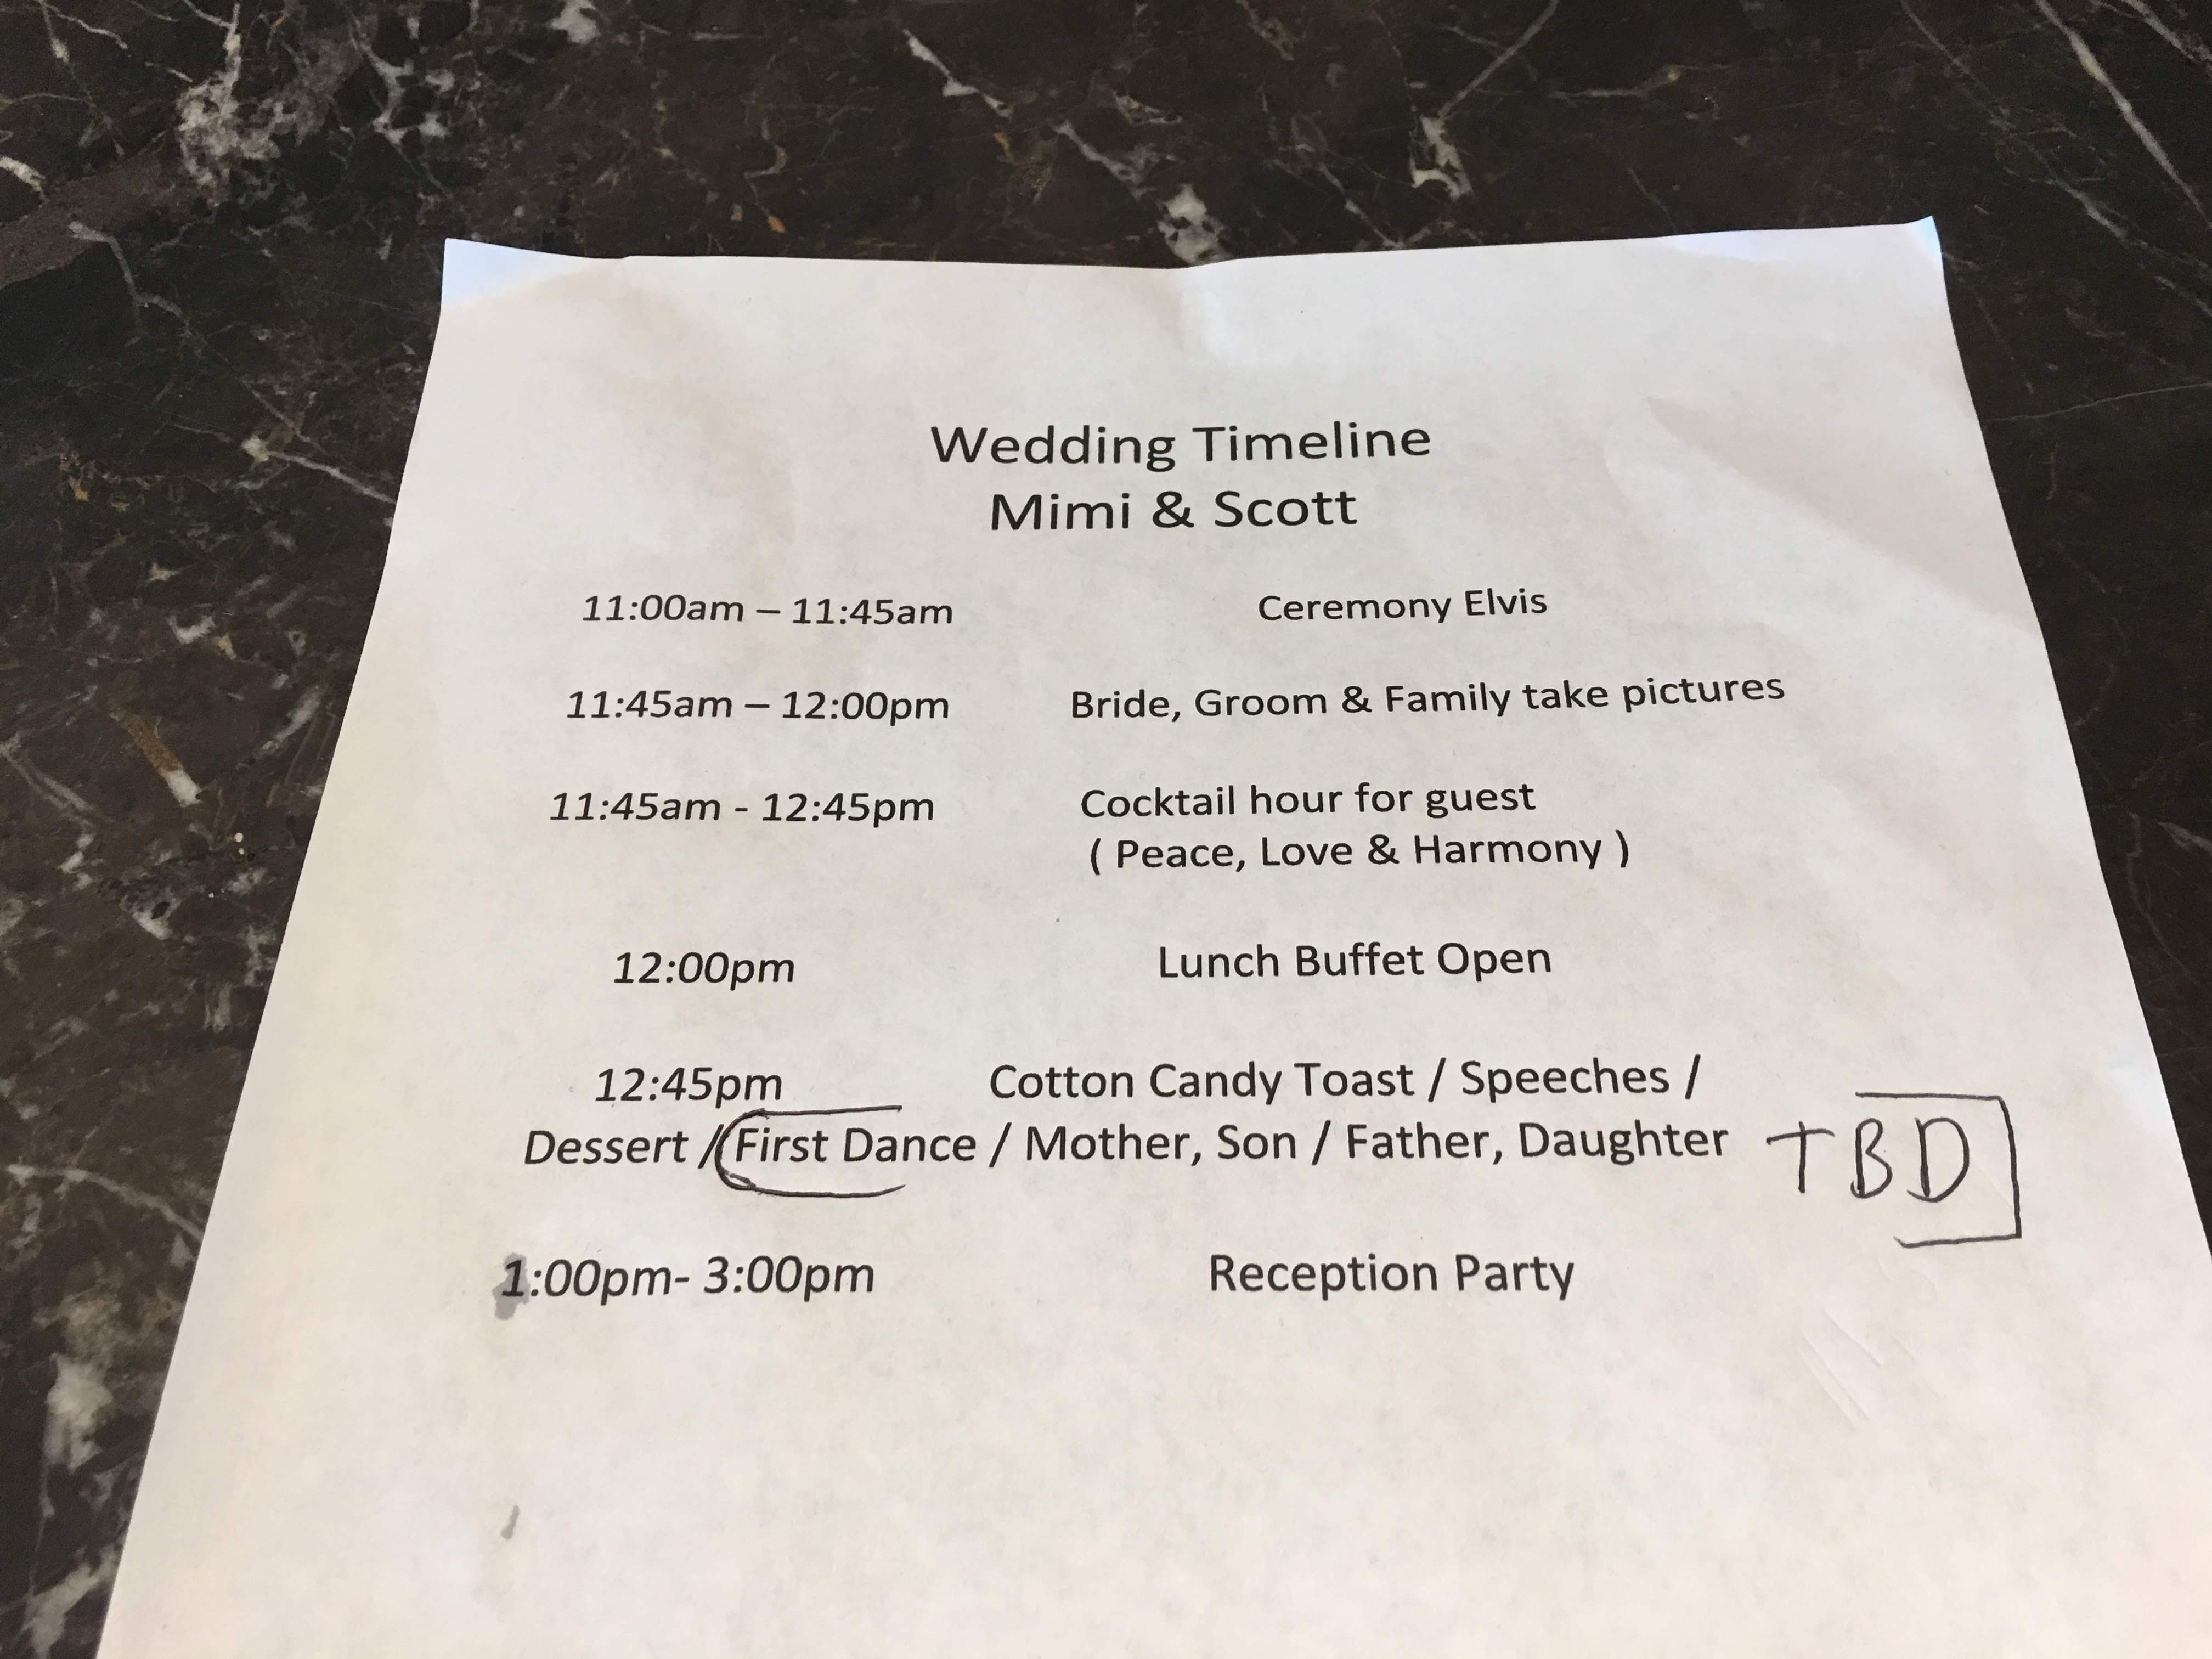 Wedding Timeline
Mimi & Scott
11:00am – 11:45am Ceremony Elvis
11:45am – 12:00pm Bride, Groom & Family take pictures
11:45am - 12:45pm Cocktail hour for guest
( Peace, Love & Harmony )
12:00pm Lunch Buffet Open
12:45pm Cotton Candy Toast / Speeches /
Dessert / First Dance / Mother, Son / Father, Daughter TBD
1:00pm- 3:00pm Reception Party